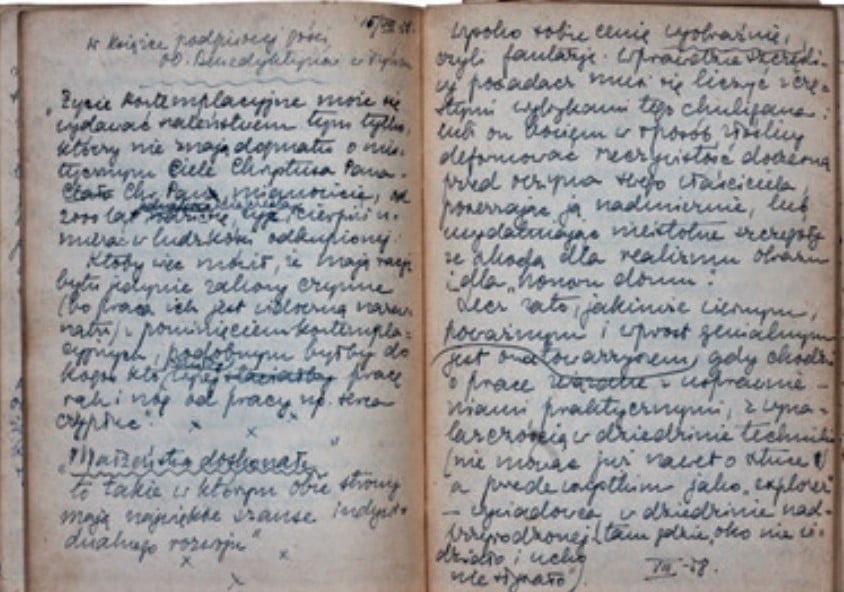 16/VII 58.
W książce podpisowej gości
oo. Benedyktynów w Tyńcu
„Życie kontemplacyjne może się
wydawać szaleństwem tym tylko,
którzy nie znają dogmatu o mis-
tycznym Ciele Chrystusa Pana.
Ciało Chr. Pana mianowicie, od
2000 lat żyje, cierpi i u-
miera w ludzkości odkupionej.
Ktoby więc mówił, że mają rację
bytu jedynie zakony czynne
(bo praca ich jest widoczną nazew-
nątrz) z pominięciem kontempla-
cyjnych, podobnym byłby do
kogoś kto pracę
rąk i nóg od pracy np. serca
czyjegoś".
x x x
„Małżeństwo doskonałe"
to takie w którym obie strony
mają największe szanse indywi-
dualnego rozwoju"
x x
x
wysoko sobie cenię wyobraźnię,
czyli fantazję. Wprawdzie szczęśli-
wy posiadacz musi się liczyć z czę-
stymi wybrykami tego chuligana:
lubi on bowiem w sposób złośliwy
deformować rzeczywistość
przed oczyma swego właściciela,
poszerzając ją nadmiernie, lub
uwydatniając nieistotne szczegóły
ze szkodą dla realizmu obrazu
i dla „honoru domu".
Lecz zato, jakimże wiernym,
poważnym i wprost genialnym
jest ona towarzyszem, gdy chodzi
o pracę z usprawnie-
niami praktycznymi, z wyna-
lazczością w dziedzinie techniki
(nie mówiąc już nawet o sztuce)
a przede wszystkim jako „explorer"
– wywiadowca w dziedzinie nad-
przyrodzonej (tam gdzie „oko nie wi-
działo i ucho
nie słyszało"). VII - 58.